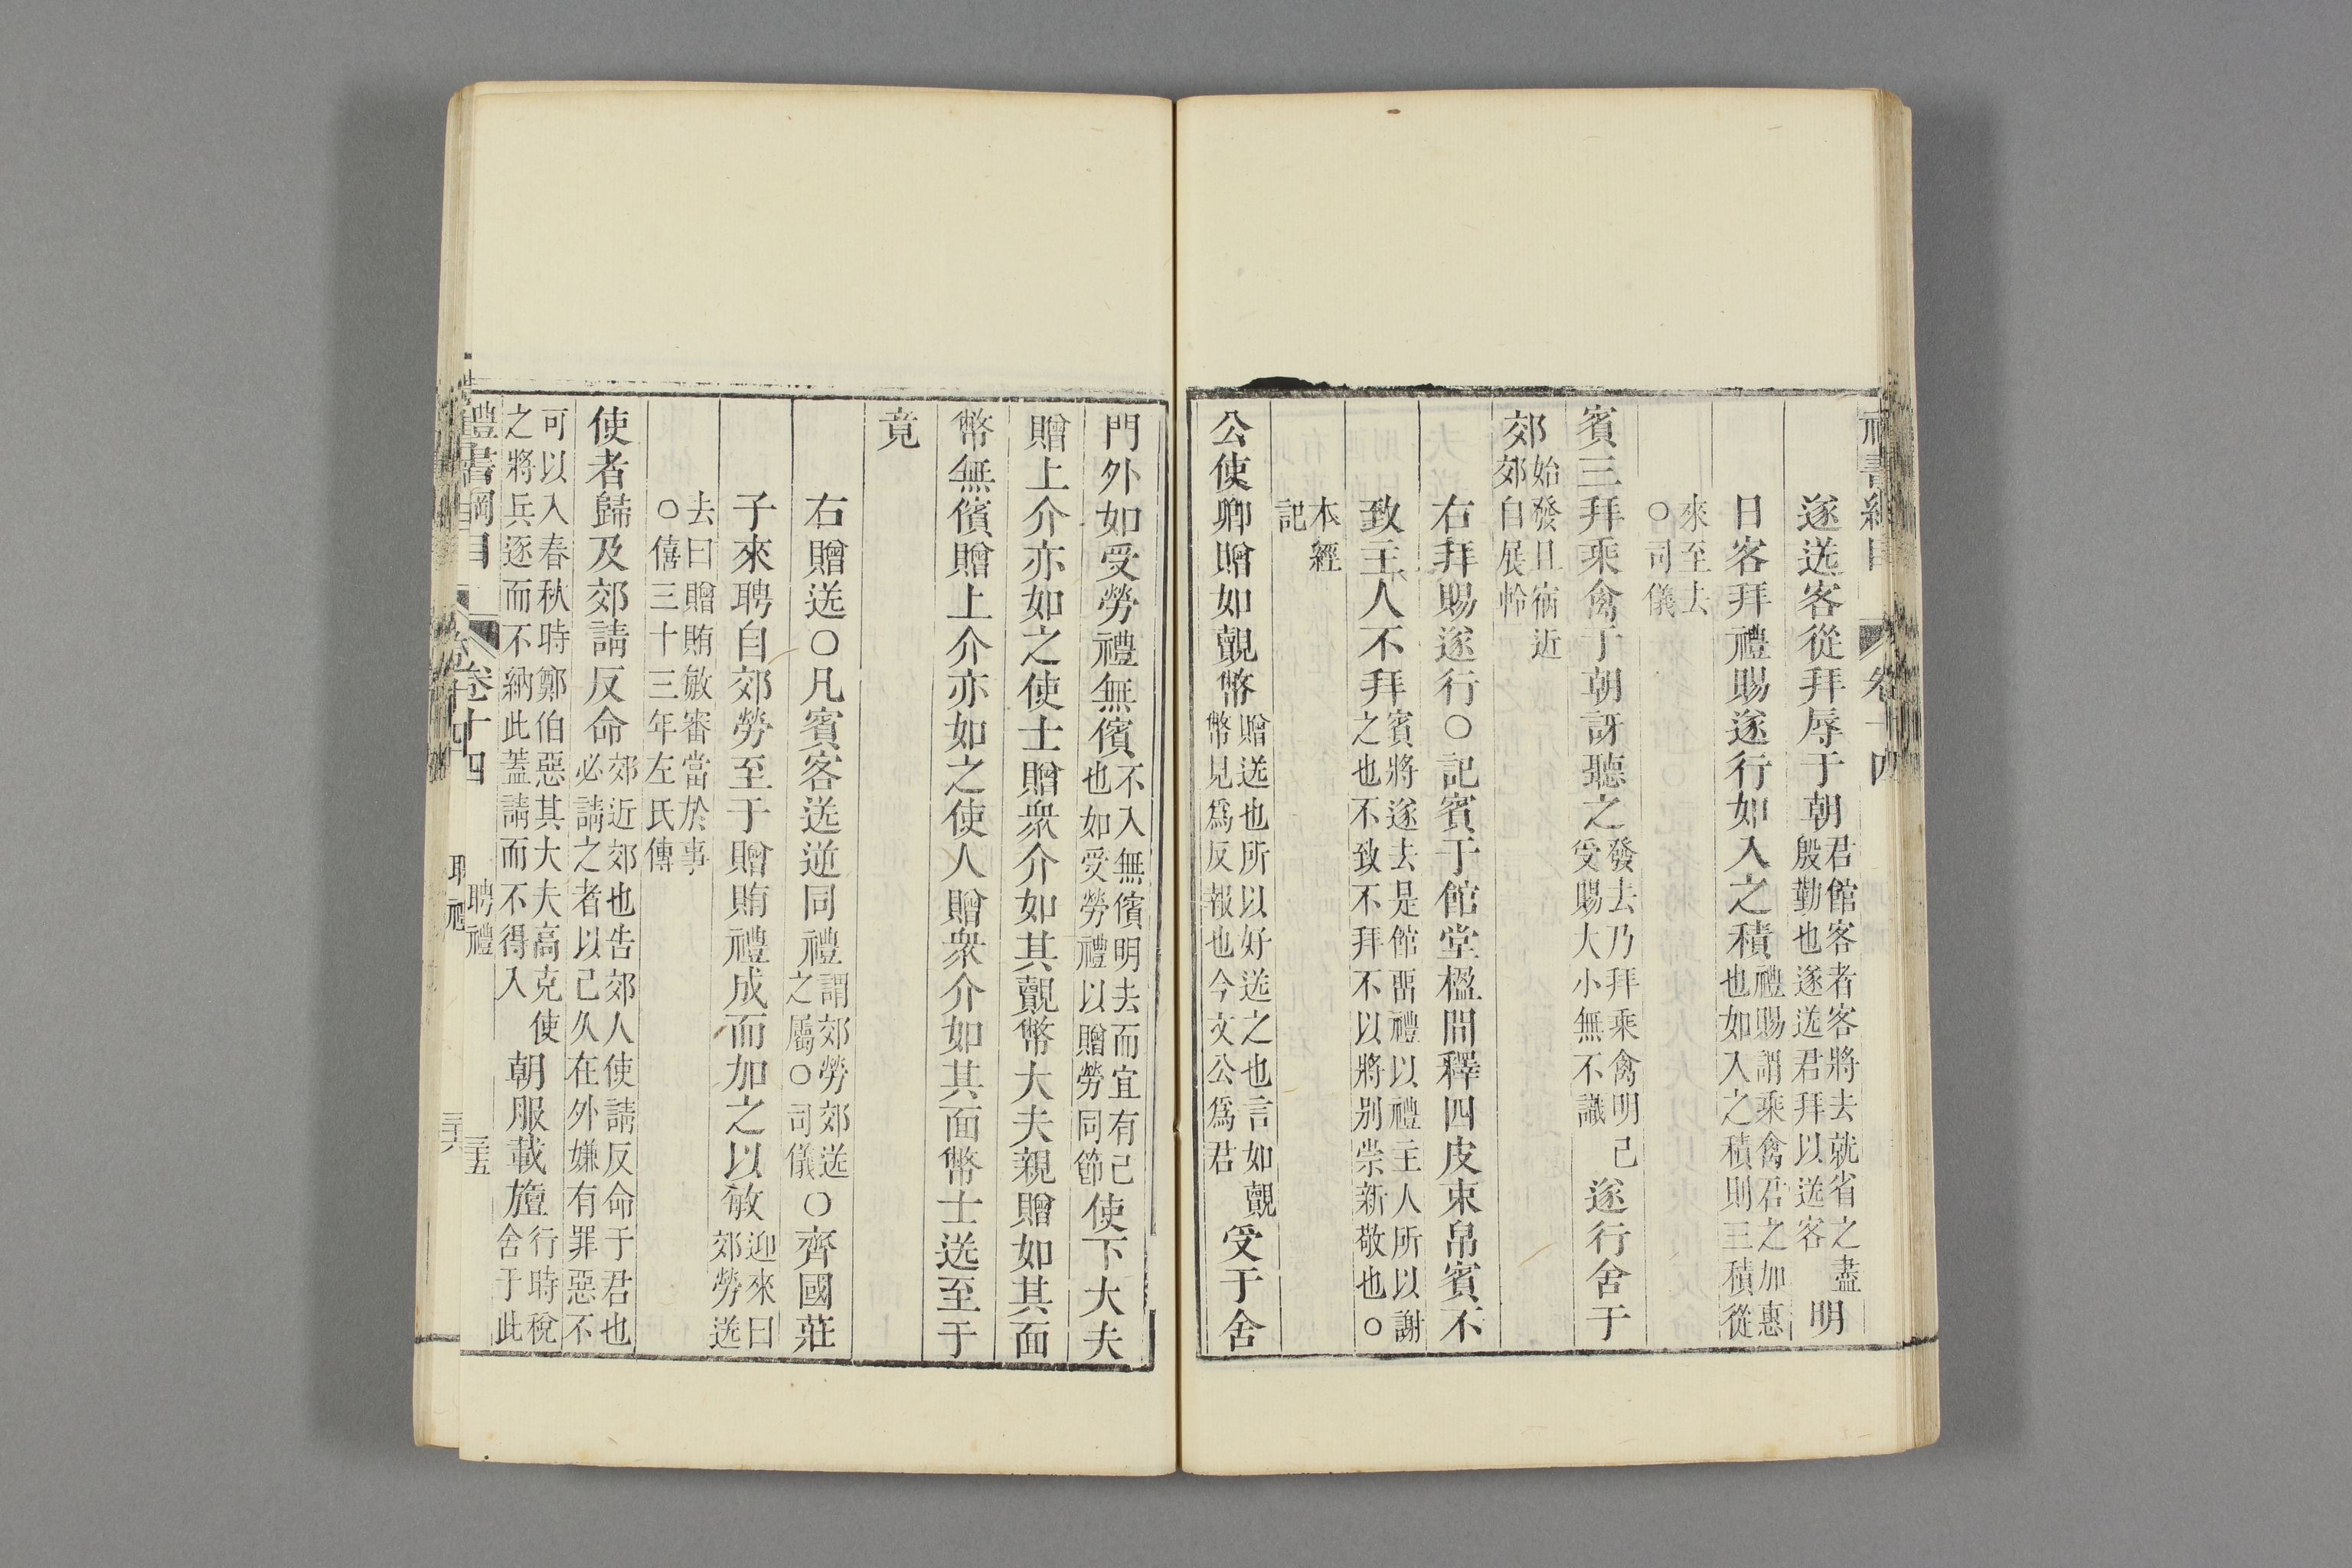 遂送客從拜辱于朝君館客者客將去就省之盡殷勤也遂送君拜以送客明
日客拜禮賜遂行如入之積禮賜謂乘禽君之加惠也如入之積則三積從
來至去○司儀
賓三拜乘禽于朝訝聽之發去乃拜乘禽明己受賜大小無不識遂行舍于
郊始發且宿近郊自展軨
右拜賜遂行○記賓于館堂楹間釋四皮束帛賓不
致主人不拜賓將遂去是館畱禮以禮主人所以謝之也不致不拜不以將别崇新敬也○
本經記
公使卿贈如覿幣贈送也所以好送之也言如覿幣見爲反報也今文公爲君受于舍
門外如受勞禮無儐不入無儐明去而宜有己也如受勞禮以贈勞同節使下大夫
贈上介亦如之使士贈衆介如其覿幣大夫親贈如其面
幣無儐贈上介亦如之使人贈衆介如其面幣士送至于
竟
右贈送○凡賓客送逆同禮謂郊勞郊送之屬○司儀○齊國莊
子來聘自郊勞至于贈賄禮成而加之以敏迎來曰郊勞送
去曰贈賄敏審當於事○僖三十三年左氏傳
使者歸及郊請反命郊近郊也告郊人使請反命于君也必請之者以己久在外嫌有罪惡不
可以入春秋時鄭伯惡其大夫高克使之將兵逐而不納此蓋請而不得入朝服載旜行時稅舍于此
禮書綱目 卷十四 聘禮 三十五